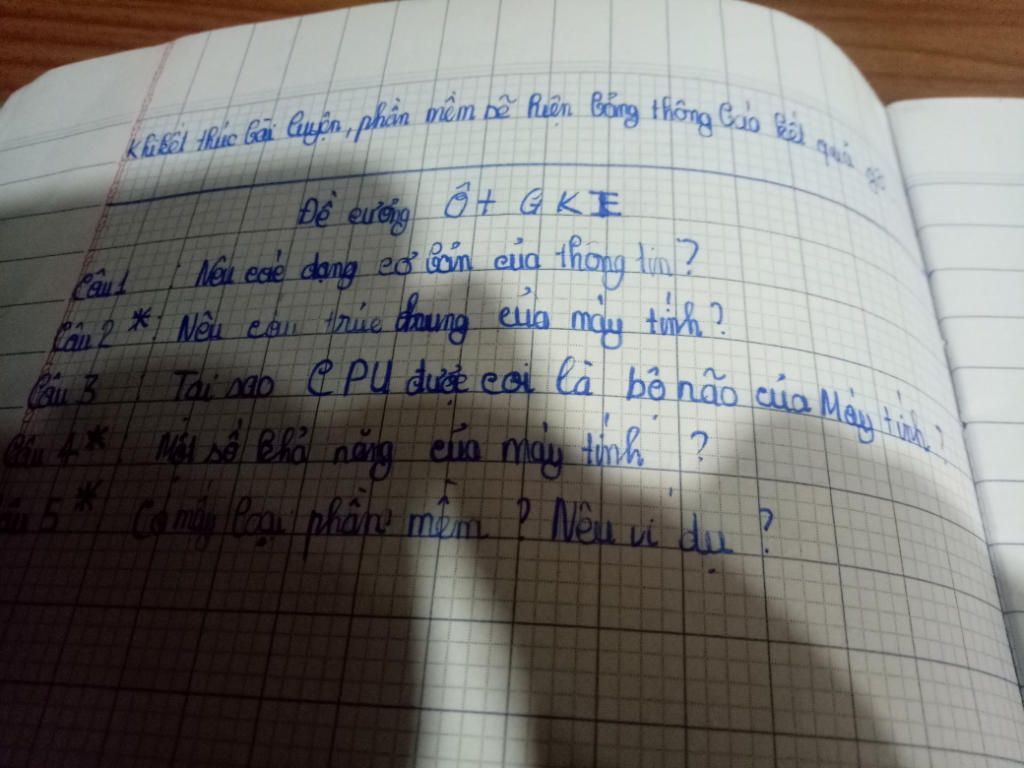 Khi kết thúc bài luyện, phần mềm sẽ hiện bảng thông báo kết quả
Đề cương Ôt GKI
Câu 1 : Nêu các dạng cơ bản của thông tin?
Câu 2 * : Nêu cấu trúc chung của máy tính?
Câu 3 : Tại sao CPU được coi là bộ não của Máy tính?
Câu 4 * : Một số khả năng của máy tính ?
Câu 5 * Có mấy loại phần mềm ? Nêu ví dụ ?